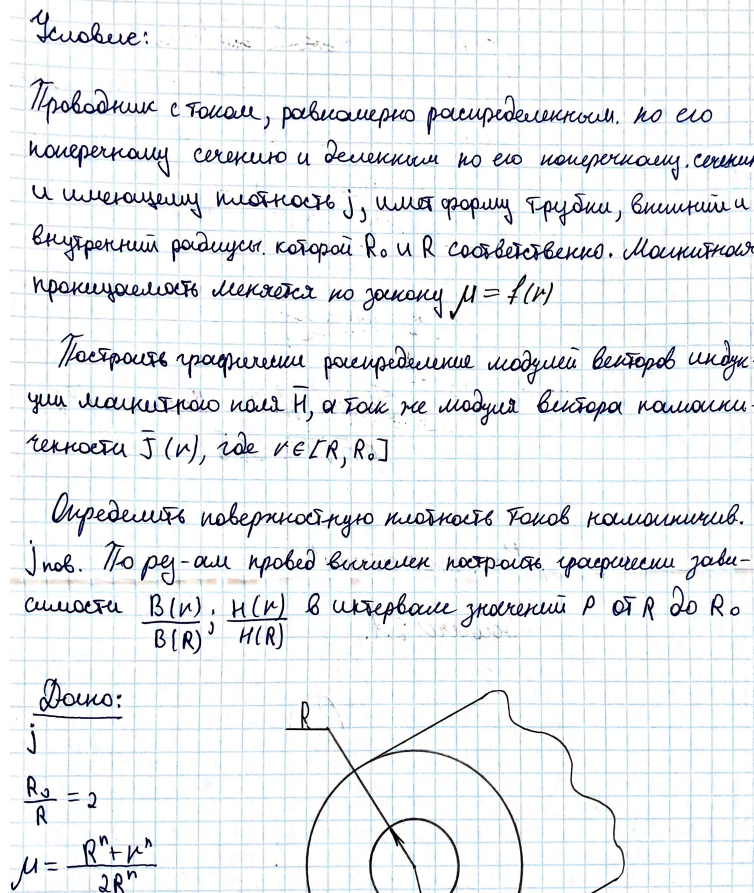 Условие:
Проводник с током, равномерно распределенным. по его
поперечному сечению и деленным по его поперечному. сечению
и имеющему плотность j, имет форму трубки, внешний и
внутренний радиусы. которой R₀ и R соответственно. Магнитная
проницаемость меняется по закону μ = f(r)
Построить графически распределение модулей векторов индук-
ции магнитного поля H̄, а так же модуля вектора намагни-
ченности J̄(r), где r∈[R, R₀]
Определить поверхностную плотность токов намагничив.
jпов. По рез-ам провед вычислен построить графически зави-
симости B(r)/B(R); H(r)/H(R) в интервале значений ρ от R до R₀
Дано:
R
j
R₀/R = 2
μ = (Rⁿ + rⁿ)/2Rⁿ